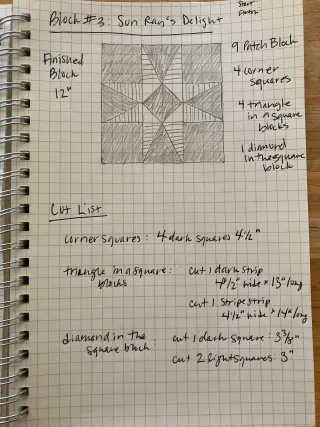 Block #3: Sun Ray's Delight
Finished
Block
12"
9 Patch Block
4 corner
squares
4 triangle
in a square
blocks
1 diamond
in the square
block
Cut List
corner squares: 4 dark squares 4½"
triangle in a square: cut 1 dark strip
blocks 4½" wide × 13" long
cut 1 stripe strip
4½" wide × 14" long
diamond in the cut 1 dark square: 3⅜"
square block: cut 2 light squares: 3"